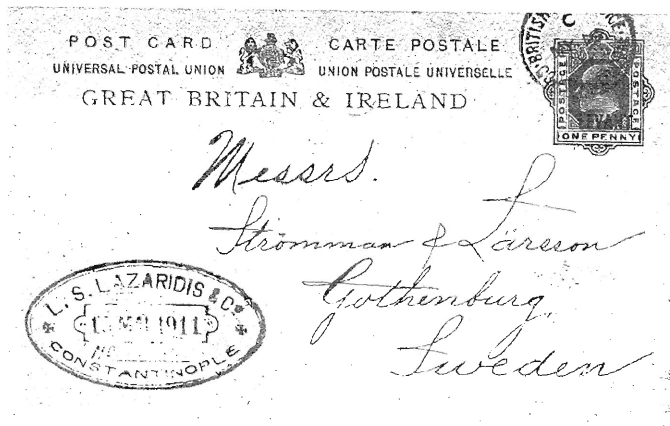 POST CARD CARTE POSTALE
UNIVERSAL POSTAL UNION UNION POSTALE UNIVERSELLE
GREAT BRITAIN & IRELAND
BRITISH
POSTAGE POSTAGE
LEVANT
ONE PENNY
Messrs.
Strömman & Larsson
Gothenburg
Sweden
L. S. LAZARIDIS & Co
1911
CONSTANTINOPLE